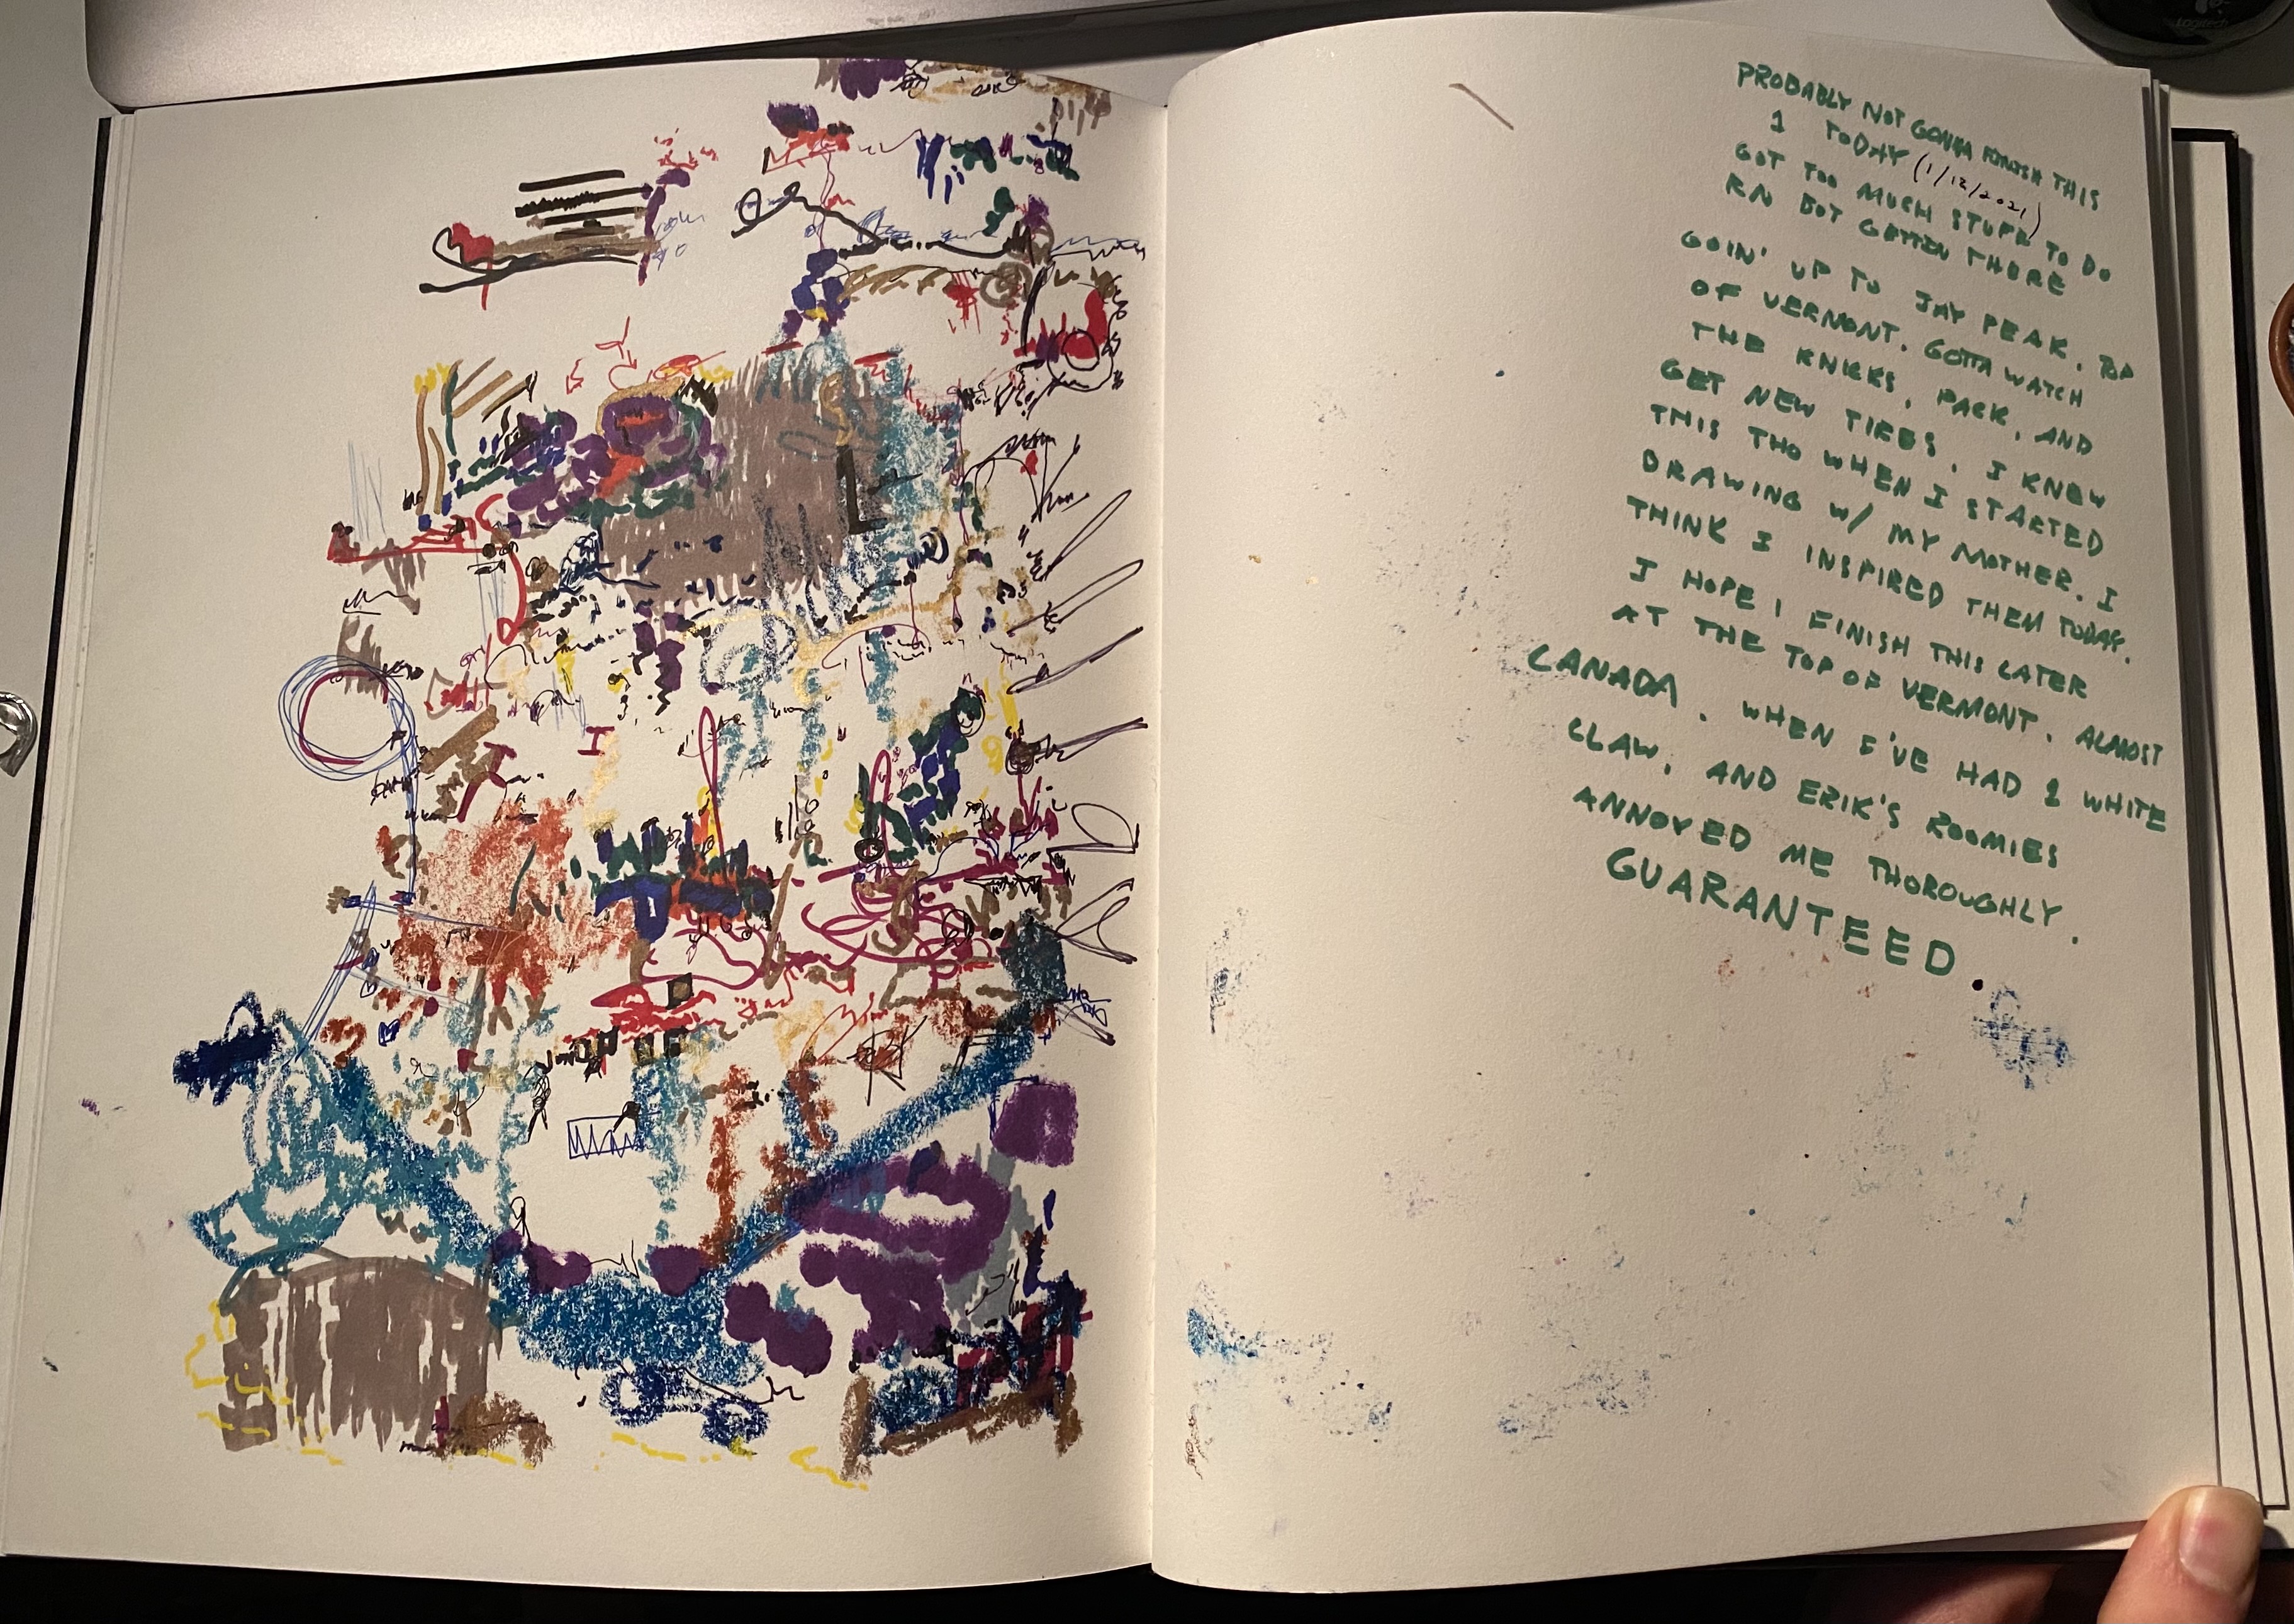 Logitech
PROBABLY NOT GONNA FINISH THIS
1 TODAY (1/12/2021)
GOT TOO MUCH STUFF TO DO
RN BUT GETTIN THERE
GOIN' UP TO JAY PEAK. TOP
OF VERMONT. GOTTA WATCH
THE KNICKS, PACK, AND
GET NEW TIRES. I KNEW
THIS THO WHEN I STARTED
DRAWING W/ MY MOTHER. I
THINK I INSPIRED THEM TODAY.
I HOPE I FINISH THIS LATER
AT THE TOP OF VERMONT. ALMOST
CANADA. WHEN I'VE HAD 1 WHITE
CLAW, AND ERIK'S ROOMIES
ANNOYED ME THOROUGHLY.
GUARANTEED.